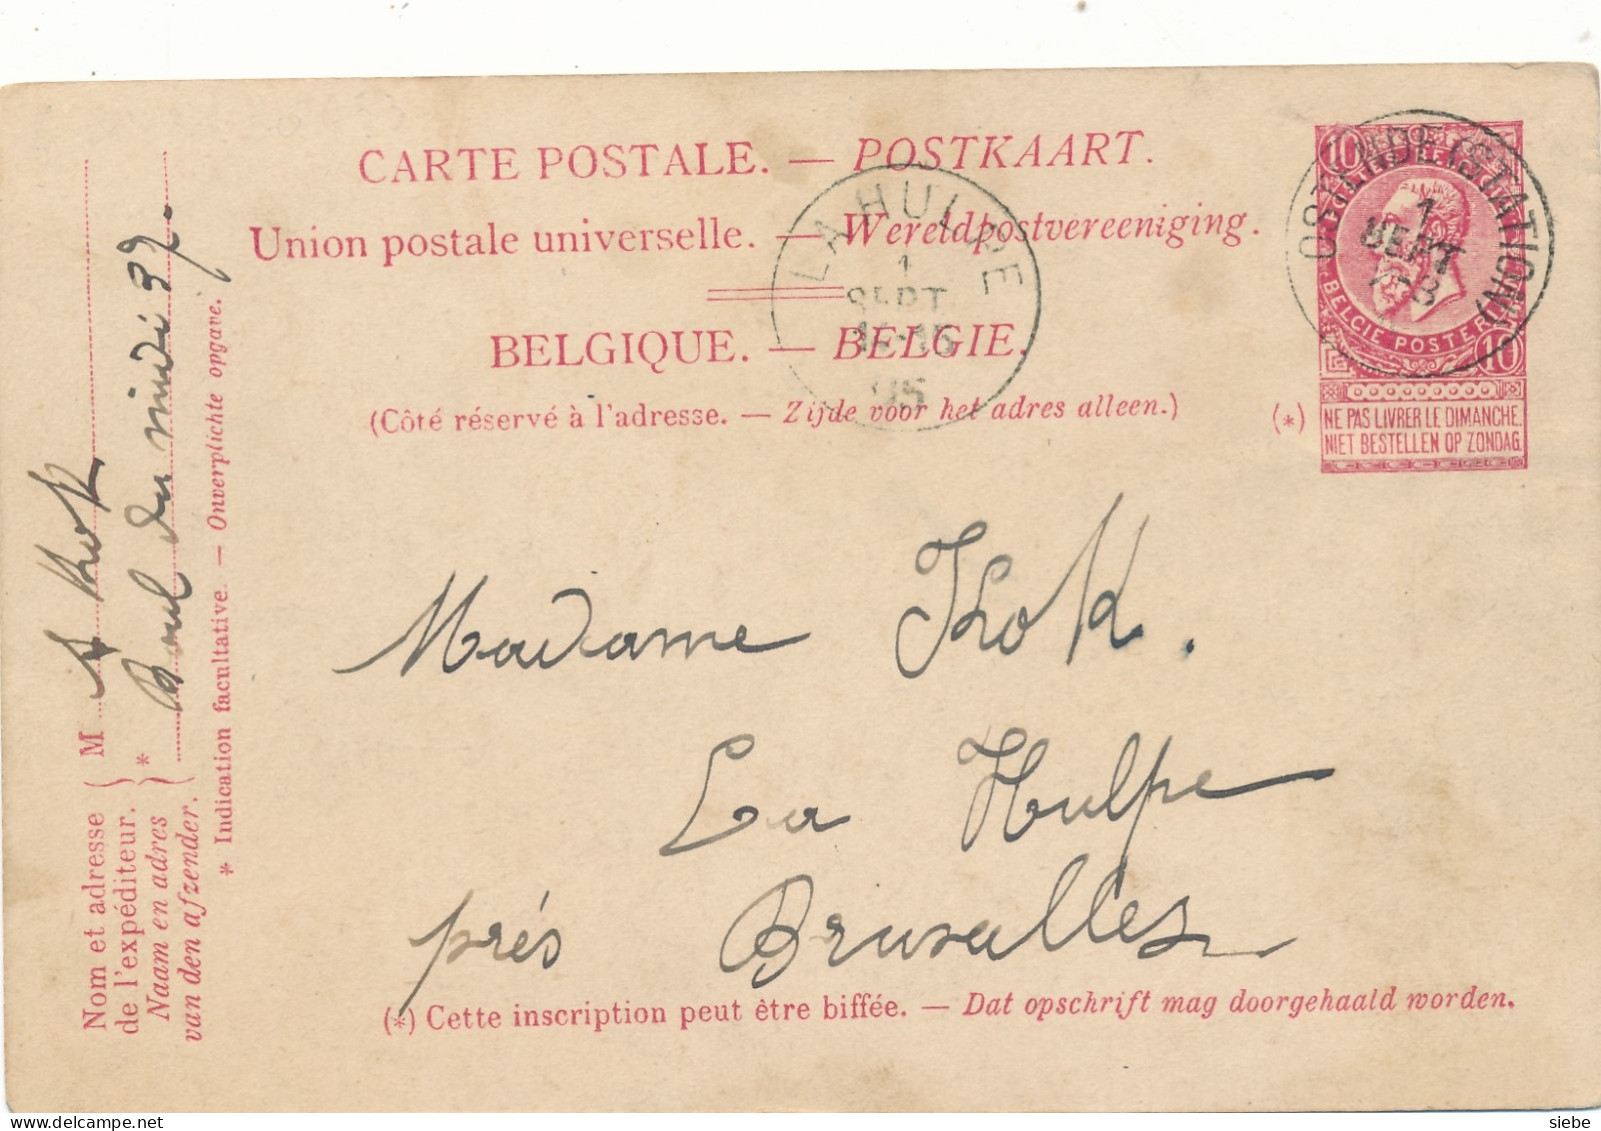 CARTE POSTALE. — POSTKAART.
Union postale universelle. — Wereldpostvereeniging.
BELGIQUE. — BELGIE.
(Côté réservé à l'adresse. — Zijde voor het adres alleen.)
LA HULPE
1
SEPT
05
10 10
BELGIE POSTERIJ
OSTENDE (STATION)
1
SEPT
(*) NE PAS LIVRER LE DIMANCHE.
NIET BESTELLEN OP ZONDAG.
Madame Kok.
La Hulpe
prés Bruxelles
(*) Cette inscription peut être biffée. — Dat opschrift mag doorgehaald worden.
Nom et adresse
de l'expéditeur.
Naam en adres
van den afzender.
M A Kok
* Boul du midi 39.
* Indication facultative. — Onverplichte opgave.
siebe